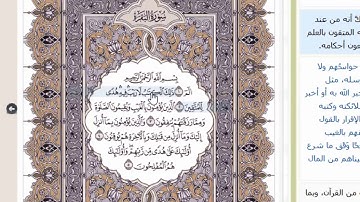 سُورَةُ البَقَرَةِ
بِسْمِ اللَّهِ الرَّحْمَٰنِ الرَّحِيمِ
الٓمٓ ذَٰلِكَ الْكِتَابُ لَا رَيْبَ فِيهِ هُدًى
لِّلْمُتَّقِينَ الَّذِينَ يُؤْمِنُونَ بِالْغَيْبِ وَيُقِيمُونَ الصَّلَاةَ
وَمِمَّا رَزَقْنَاهُمْ يُنفِقُونَ وَالَّذِينَ يُؤْمِنُونَ بِمَا أُنزِلَ
إِلَيْكَ وَمَا أُنزِلَ مِن قَبْلِكَ وَبِالْآخِرَةِ هُمْ يُوقِنُونَ
أُولَٰئِكَ عَلَىٰ هُدًى مِّن رَّبِّهِمْ وَأُولَٰئِكَ
هُمُ الْمُفْلِحُونَ
أنه من عند
المتقون بالعلم
أحكامه.
حواسُّهم ولا
رسله، مثل
الله به أو أخبر
وكتبه
الإقرار بالقول
بالغيب
وَفْق ما شرع
من المال
من القرآن، وبما